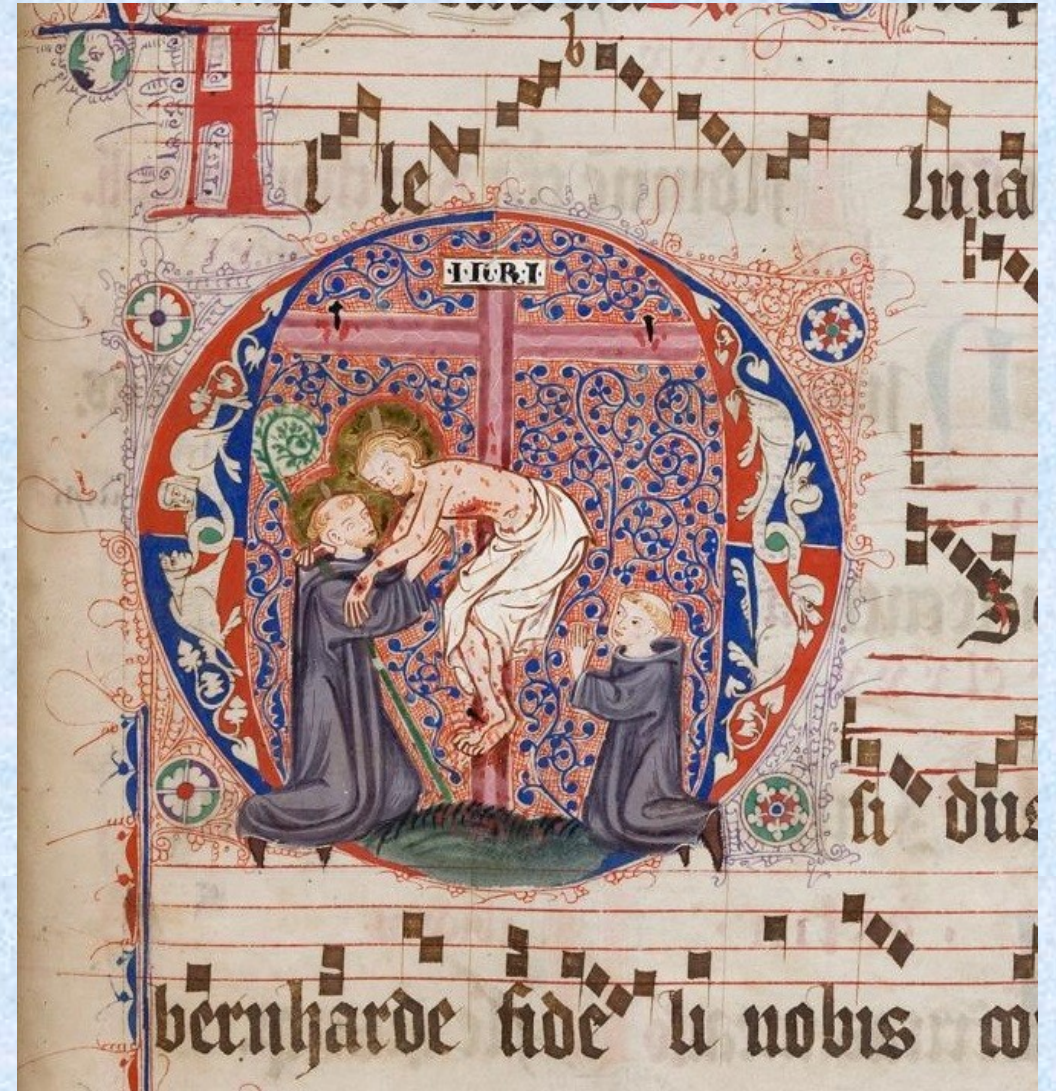 A l le luia
·I·N·R·I·
S
si dus
bernharde fide li nobis co